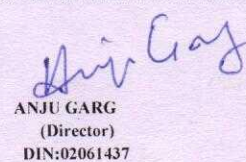 Anju Garg
ANJU GARG
(Director)
DIN:02061437